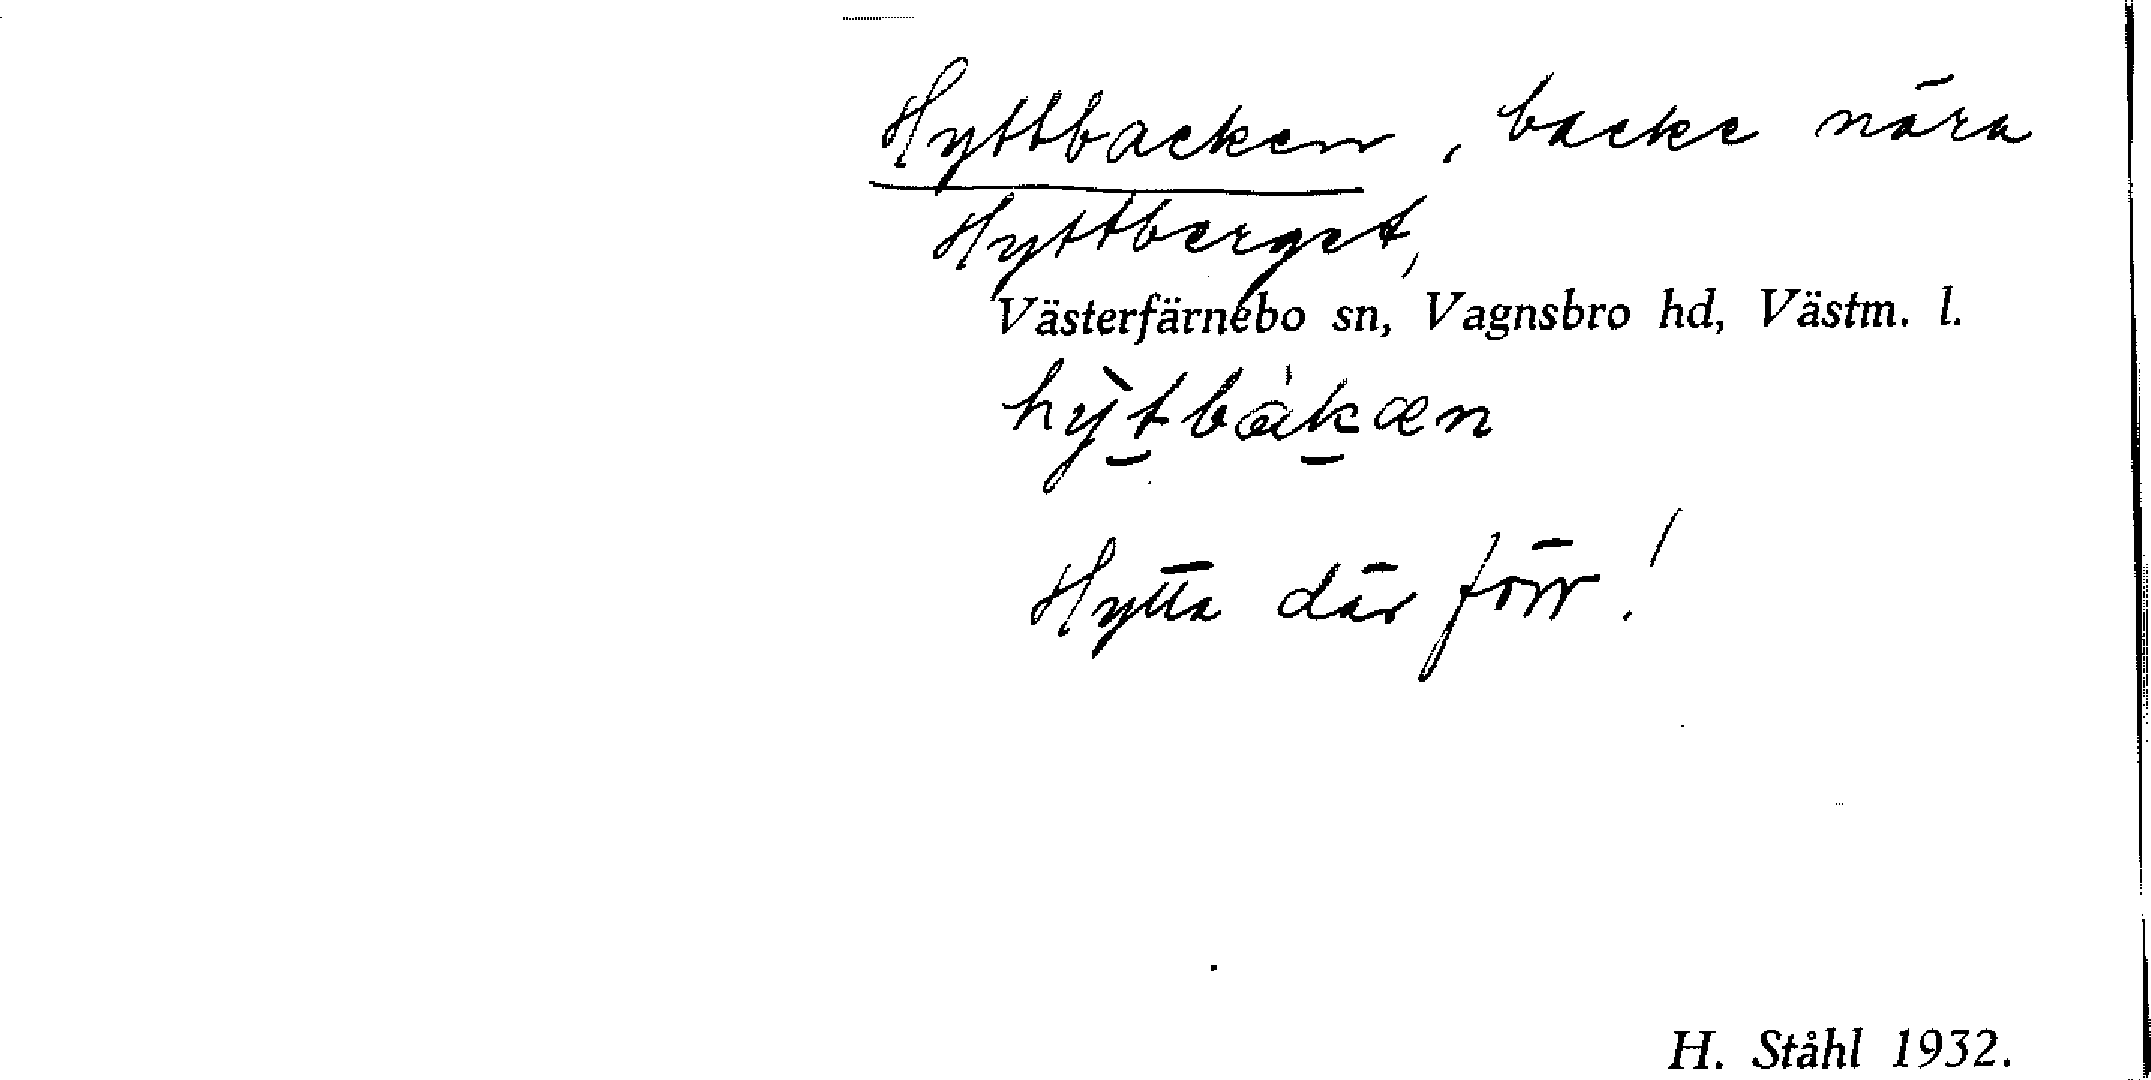 Hyttbacken, backe nära
Hyttberget,
Västerfärnebo sn, Vagnsbro hd, Västm. l.
hỳt̲bák̲æn
Hytta där förr!
H. Ståhl 1932.